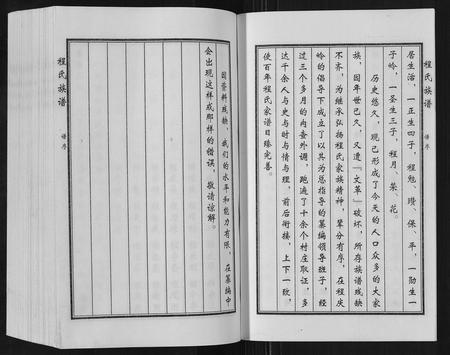 程氏族谱
谱序
居生活，一正生四子，程勉、瓒、保、平，一勋生一
子岭，一圣生三子，程月、荣、花。
历史悠久，现已形成了今天的人口众多的大家
族，因年世已久，又遭“文革”破坏，所存族谱残缺
不齐，为继承弘扬程氏家族精神，辈分有序，在程庆
岭的倡导下成立了以其为总指导的纂编领导班子，经
过三个多月的内查外调，跑遍了十余个村庄取证，多
达千余人与史与时与情与理，前后衔接，上下一致，
使百年程氏家谱日臻完善。
因资料残缺，我们的水平和能力有限，在纂编中
会出现这样或那样的错误，敬请谅解。
程氏族谱
谱序